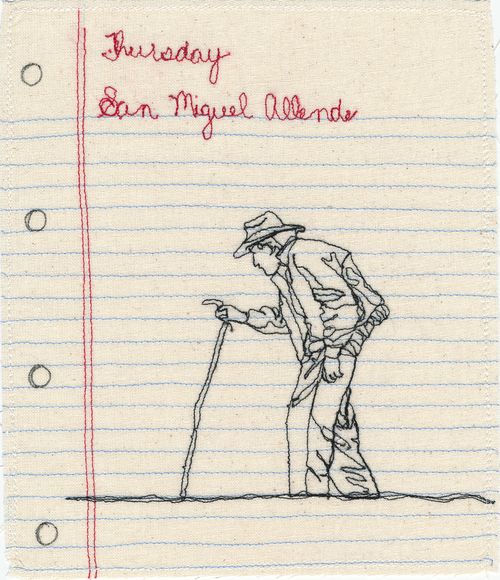 Thursday
San Miguel Allende